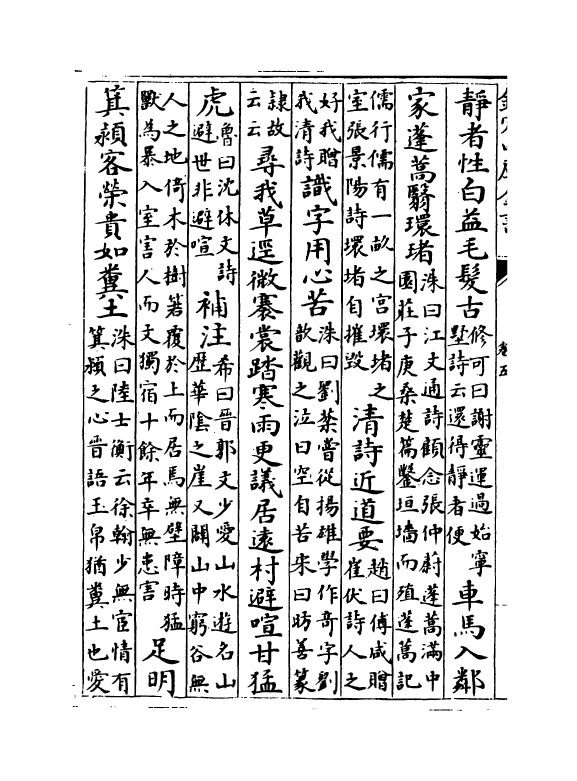 卷五
靜者性白益毛髮古修可曰謝靈運過始寧
墅詩云還得靜者便車馬入鄰
家蓬蒿翳環堵洙曰江文通詩顧念張仲蔚蓬蒿滿中
園莊子庚桑楚篇鑿垣墻而殖蓬蒿記
儒行儒有一畝之宮環堵之
室張景陽詩環堵自摧毁清詩近道要趙曰傅咸贈
崔伏詩人之
好我贈
我清詩識字用心苦洙曰劉棻嘗從揚雄學作奇字劉
歆觀之泣曰空自苦宋曰昉善篆
隷故
云云尋我草逕微褰裳踏寒雨更議居遠村避喧甘猛
虎魯曰沈休文詩
避世非避喧補注希曰晉郭文少愛山水遊名山
歷華陰之崖又關山中窮谷無
人之地倚木於樹苫覆於上而居焉無壁障時猛
獸為暴入室害人而文獨宿十餘年卒無患害足明
箕潁客榮貴如糞土洙曰陸士衡云徐翰少無宦情有
箕潁之心晉語玉帛猶糞土也愛